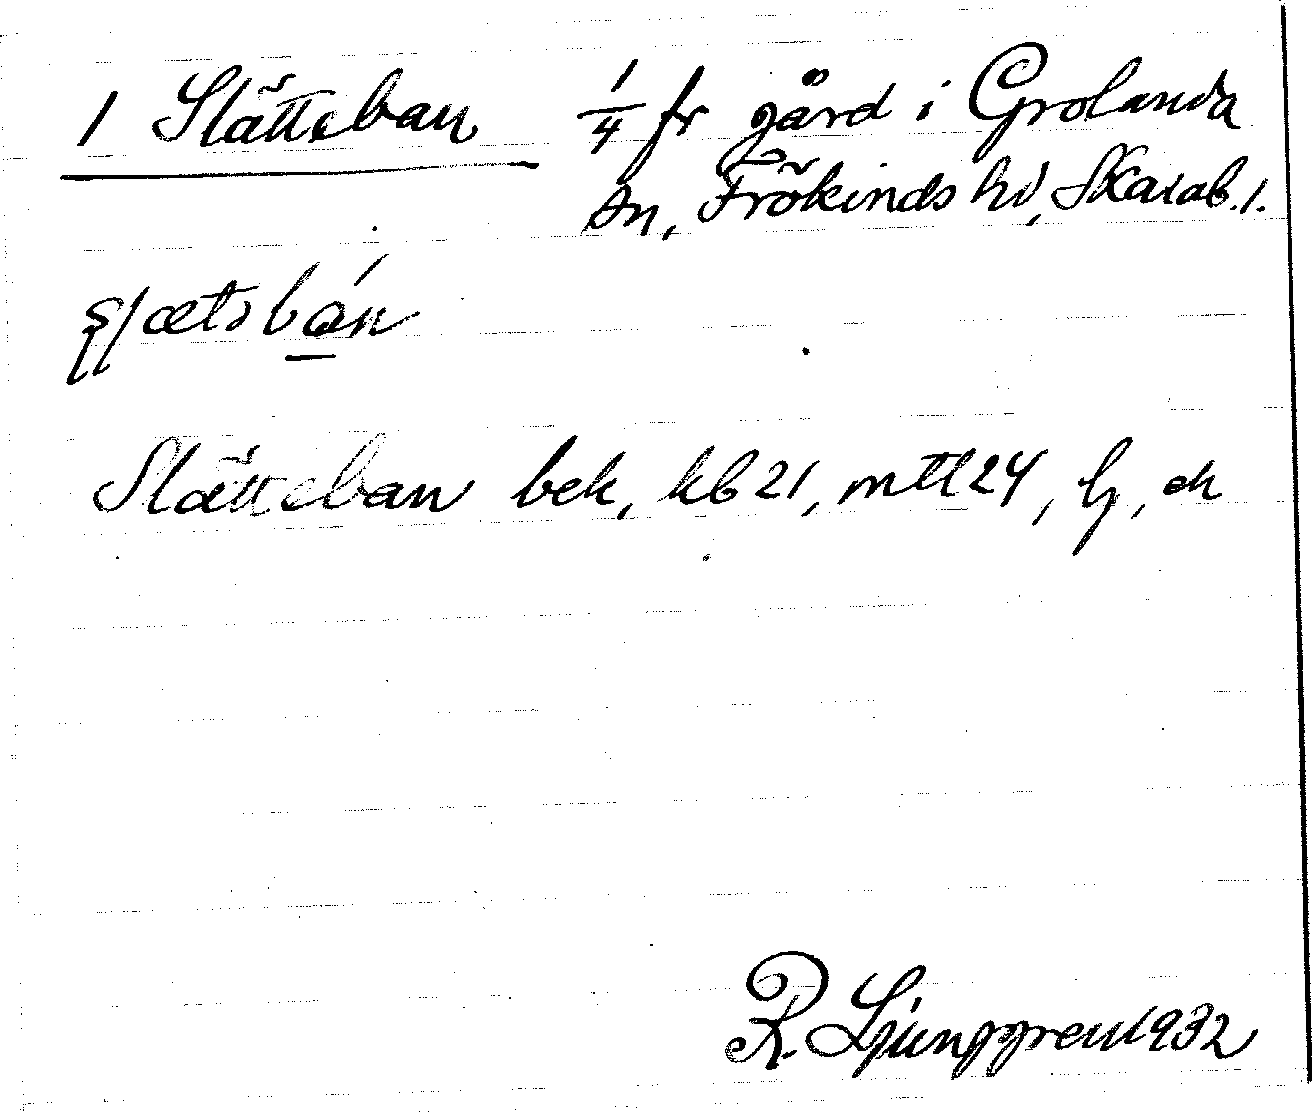 1 Slätteban 1/4 fr gård i Grolanda
sn, Frökinds hd, Skarab. l.
Slätteban bek, kb 21, mtl 24, lj, ek
R. Ljunggren 1932